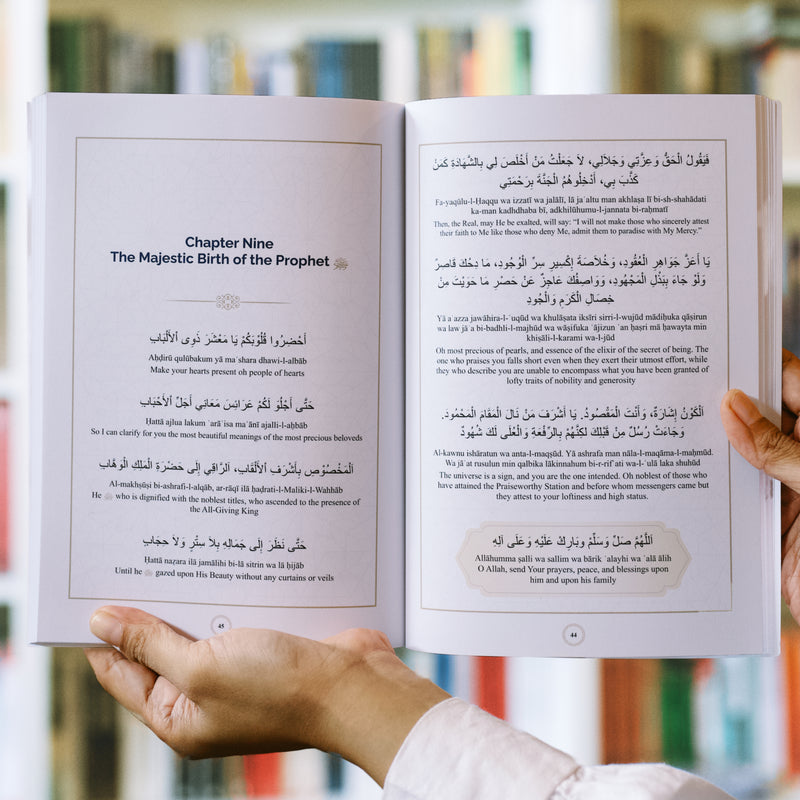 فَيَقُولُ الْحَقُّ وَعِزَّتِي وَجَلَالِي، لَا جَعَلْتُ مَنْ أَخْلَصَ لِي بِالشَّهَادَةِ كَمَنْ
كَذَّبَ بِي، أَدْخِلُوهُمُ الْجَنَّةَ بِرَحْمَتِي
Fa-yaqūlu-l-Ḥaqqu wa izzatī wa jalālī, lā jaʿaltu man akhlaṣa lī bi-sh-shahādati
ka-man kadhdhaba bī, adkhilūhumu-l-jannata bi-raḥmatī
Then, the Real, may He be exalted, will say: “I will not make those who sincerely attest
their faith to Me like those who deny Me, admit them to paradise with My Mercy.”
يَا أَعَزَّ جَوَاهِرِ الْعُقُودِ، وَخُلَاصَةَ إِكْسِيرِ سِرِّ الْوُجُودِ، مَادِحُكَ قَاصِرٌ
وَلَوْ جَاءَ بِبَذْلِ الْمَجْهُودِ، وَوَاصِفُكَ عَاجِزٌ عَنْ حَصْرِ مَا حَوَيْتَ مِنْ
خِصَالِ الْكَرَمِ وَالْجُودِ
Yā aʿazza jawāhira-l-ʿuqūd wa khulāṣata iksīri sirri-l-wujūd mādiḥuka qāṣirun
wa law jāʾa bi-badhli-l-majhūd wa wāṣifuka ʿājizun ʿan ḥaṣri mā ḥawayta min
khiṣāli-l-karami wa-l-jūd
Oh most precious of pearls, and essence of the elixir of the secret of being. The
one who praises you falls short even when they exert their utmost effort, while
they who describe you are unable to encompass what you have been granted of
lofty traits of nobility and generosity
اَلْكَوْنُ إِشَارَةٌ، وَأَنْتَ الْمَقْصُودُ. يَا أَشْرَفَ مَنْ نَالَ الْمَقَامَ الْمَحْمُودَ.
وَجَاءَتْ رُسُلٌ مِنْ قَبْلِكَ لٰكِنَّهُمْ بِالرِّفْعَةِ وَالْعُلَى لَكَ شُهُودٌ
Al-kawnu ishāratun wa anta-l-maqsūd. Yā ashrafa man nāla-l-maqāma-l-maḥmūd.
Wa jāʾat rusulun min qalbika lākinnahum bi-r-rifʿati wa-l-ʿulā laka shuhūd
The universe is a sign, and you are the one intended. Oh noblest of those who
have attained the Praiseworthy Station and before whom messengers came but
they attest to your loftiness and high status.
اَللّٰهُمَّ صَلِّ وَسَلِّمْ وَبَارِكْ عَلَيْهِ وَعَلَى آلِهِ
Allāhumma ṣalli wa sallim wa bārik ʿalayhi wa ʿalā ālih
O Allah, send Your prayers, peace, and blessings upon
him and upon his family
44
Chapter Nine
The Majestic Birth of the Prophet ﷺ
أَحْضِرُوا قُلُوْبَكُمْ يَا مَعْشَرَ ذَوِى الْأَلْبَابِ
Aḥḍirū qulūbakum yā maʿshara dhawi-l-albāb
Make your hearts present oh people of hearts
حَتَّى أَجْلُوَ لَكُمْ عَرَائِسَ مَعَانِي أَجَلِّ الْأَحْبَابِ
Ḥattā ajlua lakum ʿarāʾisa maʿānī ajalli-l-aḥbāb
So I can clarify for you the most beautiful meanings of the most precious beloveds
اَلْمَخْصُوْصِ بِأَشْرَفِ الْأَلْقَابِ، اَلرَّاقِي إِلَى حَضْرَةِ الْمَلِكِ الْوَهَّابِ
Al-makhṣūṣi bi-ashrafi-l-alqāb, ar-rāqī ilā ḥaḍrati-l-Maliki-l-Wahhāb
He ﷺ who is dignified with the noblest titles, who ascended to the presence of
the All-Giving King
حَتَّى نَظَرَ إِلَى جَمَالِهِ بِلَا سِتْرٍ وَلَا حِجَابٍ
Ḥattā naẓara ilā jamālihi bi-lā sitrin wa lā ḥijāb
Until he ﷺ gazed upon His Beauty without any curtains or veils
45